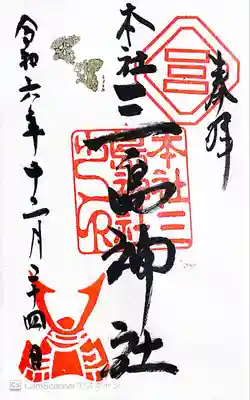 奉拝
本社三島神社
令和六年十二月二十四日
本社三
島神社
之印
CS CamScannerでスキャン